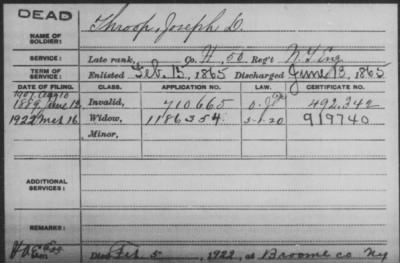 DEAD
NAME OF SOLDIER: Throop, Joseph D.
SERVICE: Late rank, Co. H, 50 Reg't N.Y. Eng
TERM OF SERVICE: Enlisted Feb. 13, 1865 Discharged June 13, 1865
DATE OF FILING. CLASS. APPLICATION NO. LAW. CERTIFICATE NO.
1889, June 12 Invalid, 710665 492,342
1922 Mch 16 Widow, 1186354 5-1-20 919740
Minor,
ADDITIONAL SERVICES:
REMARKS:
Died Feb. 5, 1922, at Broome co Ny